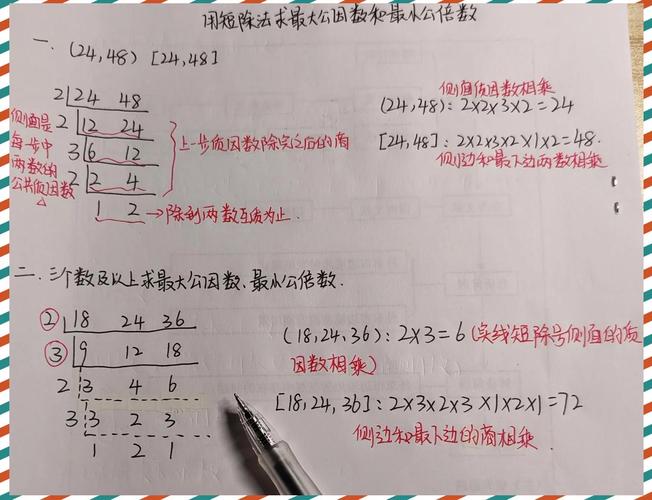 用短除法求最大公因数和最小公倍数
一、(24,48) [24,48]
2 24 48
2 12 24
3 6 12
2 2 4
1 2
侧面是
每一步中
两数的
公共质因数
上一步质因数除完之后的商
→除到两数互质为止.
侧面质因数相乘
(24,48): 2×2×3×2=24
[24,48]: 2×2×3×2×1×2=48.
侧边和最下边两数相乘
二、三个数及以上求最大公因数、最小公倍数.
② 18 24 36
③ 9 12 18
2 3 4 6
3 3 2 3
1 2 1
(18,24,36): 2×3=6 (实线短除号侧面的质
因数相乘)
[18,24,36]: 2×3×2×3×1×2×1=72
侧边和最下边的商相乘.